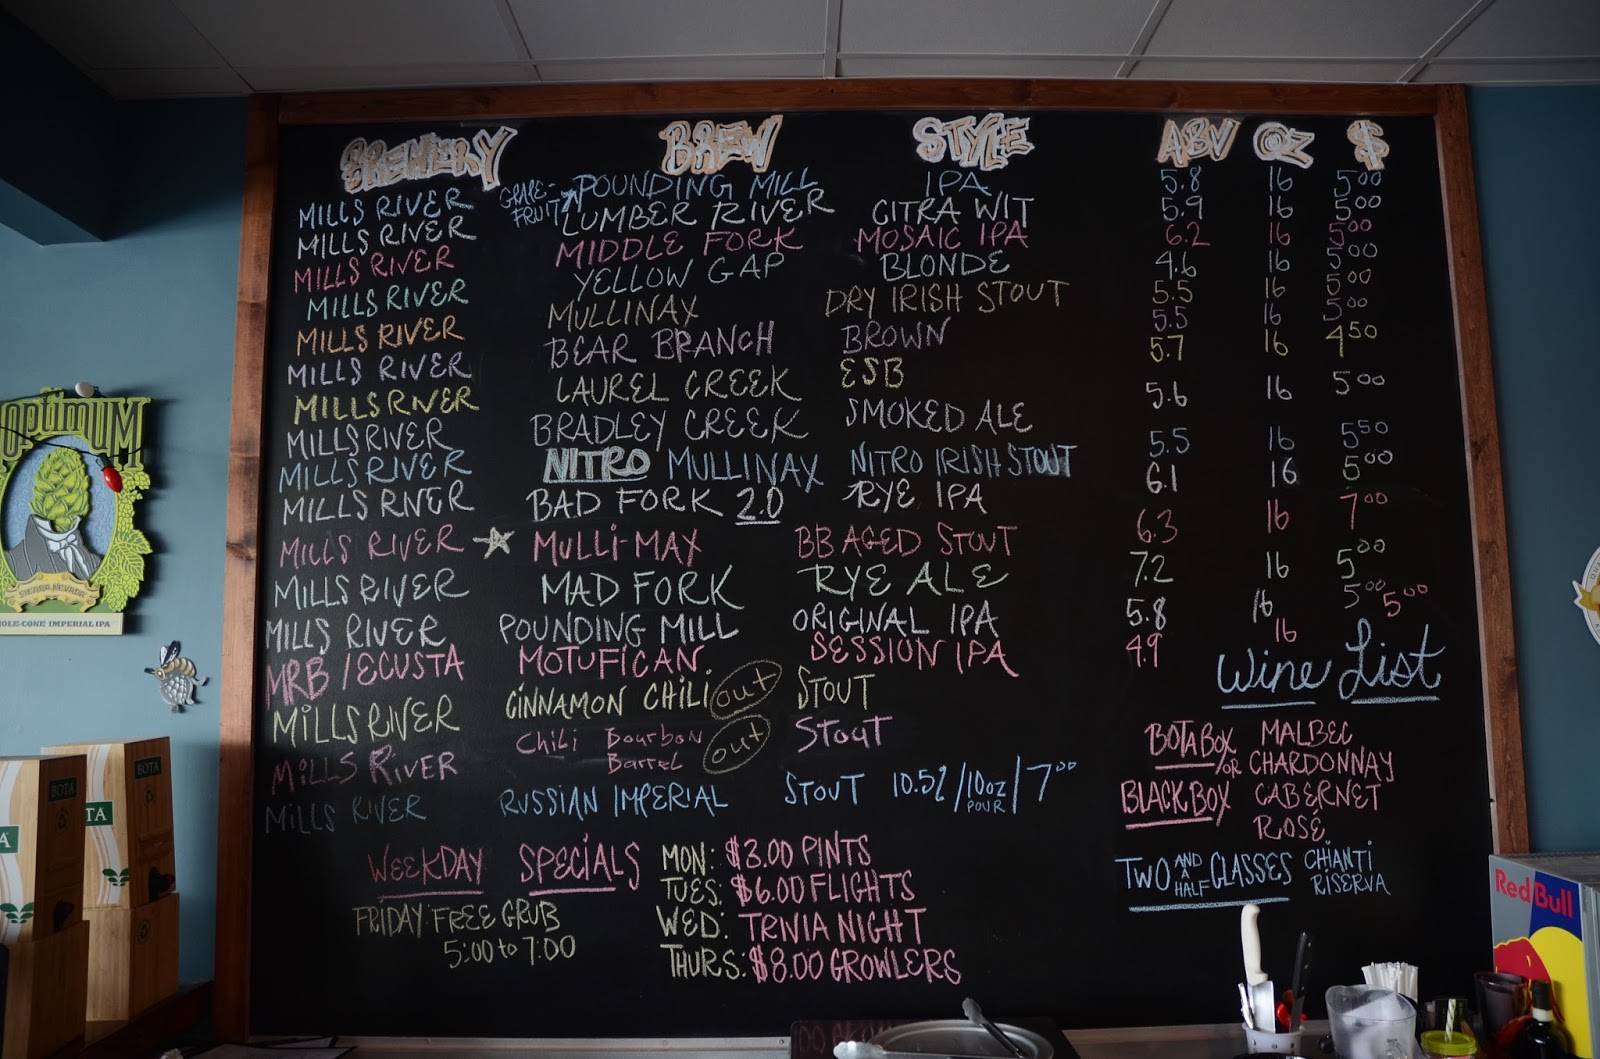 BREWERY BREW STYLE ABV OZ $
MILLS RIVER GRAPE-FRUIT POUNDING MILL IPA 5.8 16 5⁰⁰
MILLS RIVER LUMBER RIVER CITRA WIT 5.9 16 5⁰⁰
MILLS RIVER MIDDLE FORK MOSAIC IPA 6.2 16 5⁰⁰
MILLS RIVER YELLOW GAP BLONDE 4.6 16 5⁰⁰
MILLS RIVER MULLINAX DRY IRISH STOUT 5.5 16 5⁰⁰
MILLS RIVER BEAR BRANCH BROWN 5.5 16 5⁰⁰
MILLS RIVER LAUREL CREEK ESB 5.7 16 4⁵⁰
MILLS RIVER BRADLEY CREEK SMOKED ALE 5.6 16 5⁰⁰
MILLS RIVER NITRO MULLINAX NITRO IRISH STOUT 5.5 16 5⁵⁰
MILLS RIVER BAD FORK 2.0 RYE IPA 6.1 16 5⁰⁰
MILLS RIVER MULLI-MAX BB AGED STOUT 6.3 16 7⁰⁰
MILLS RIVER MAD FORK RYE ALE 7.2 16 5⁰⁰
MILLS RIVER POUNDING MILL ORIGINAL IPA 5.8 16 5⁰⁰
MRB/ECUSTA MOTUFICAN SESSION IPA 4.9 16 5⁰⁰
MILLS RIVER CINNAMON CHILI out STOUT
MILLS RIVER Chili Bourbon Barrel out Stout
MILLS RIVER RUSSIAN IMPERIAL STOUT 10.5%/10oz POUR/7⁰⁰
Wine List
BOTA BOX MALBEC
OR CHARDONNAY
BLACK BOX CABERNET
ROSÉ
TWO AND A HALF GLASSES CHIANTI RISERVA
WEEKDAY SPECIALS
MON: $3.00 PINTS
TUES: $6.00 FLIGHTS
WED: TRIVIA NIGHT
THURS: $8.00 GROWLERS
FRIDAY FREE GRUB
5:00 to 7:00
OPTIMUM
SIERRA NEVADA
OLE-CONE IMPERIAL IPA
BOTA
BOTA
TA
Red Bull